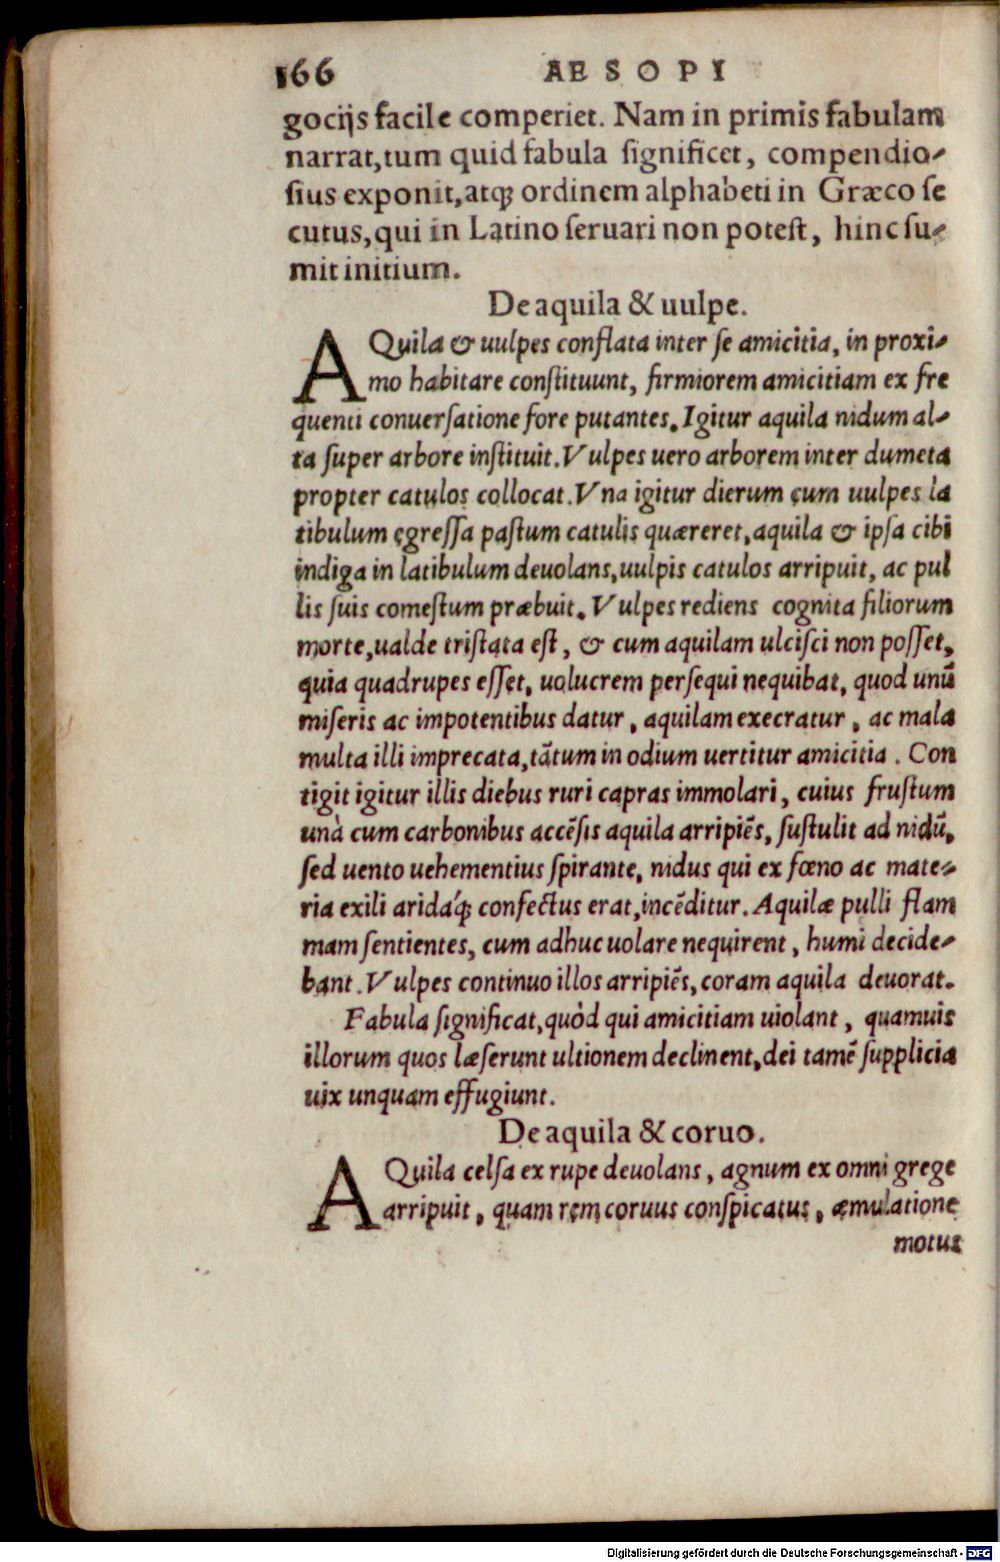 166 AESOPI
gocijs facile comperiet. Nam in primis fabulam
narrat, tum quid fabula ſignificet, compendio-
ſius exponit, atqꝫ ordinem alphabeti in Græco ſe
cutus, qui in Latino ſeruari non poteſt, hinc ſu-
mit initium.
De aquila & uulpe.
AQuila & uulpes conflata inter ſe amicitia, in proxi-
mo habitare conſtituunt, firmiorem amicitiam ex fre
quenti conuerſatione fore putantes. Igitur aquila nidum al-
ta ſuper arbore inſtituit. Vulpes uero arborem inter dumeta
propter catulos collocat. Vna igitur dierum cum uulpes la
tibulum egreſſa paſtum catulis quæreret, aquila & ipſa cibi
indiga in latibulum deuolans, uulpis catulos arripuit, ac pul
lis ſuis comeſtum præbuit. Vulpes rediens cognita filiorum
morte, ualde triſtata eſt, & cum aquilam ulciſci non poſſet,
quia quadrupes eſſet, uolucrem perſequi nequibat, quod unũ
miſeris ac impotentibus datur, aquilam execratur, ac mala
multa illi imprecata, tãtum in odium uertitur amicitia. Con
tigit igitur illis diebus ruri capras immolari, cuius fruſtum
unà cum carbonibus accẽſis aquila arripiẽs, ſuſtulit ad nidũ,
ſed uento uehementius ſpirante, nidus qui ex fœno ac mate-
ria exili aridáqꝫ confectus erat, incẽditur. Aquilæ pulli flam
mam ſentientes, cum adhuc uolare nequirent, humi decide-
bant. Vulpes continuo illos arripiẽs, coram aquila deuorat.
Fabula ſignificat, quòd qui amicitiam uiolant, quamuis
illorum quos læſerunt ultionem declinent, dei tamẽ ſupplicia
uix unquam effugiunt.
De aquila & coruo.
AQuila celſa ex rupe deuolans, agnum ex omni grege
arripuit, quam rem coruus conſpicatus, æmulatione
motus
Digitalisierung gefördert durch die Deutsche Forschungsgemeinschaft - DFG